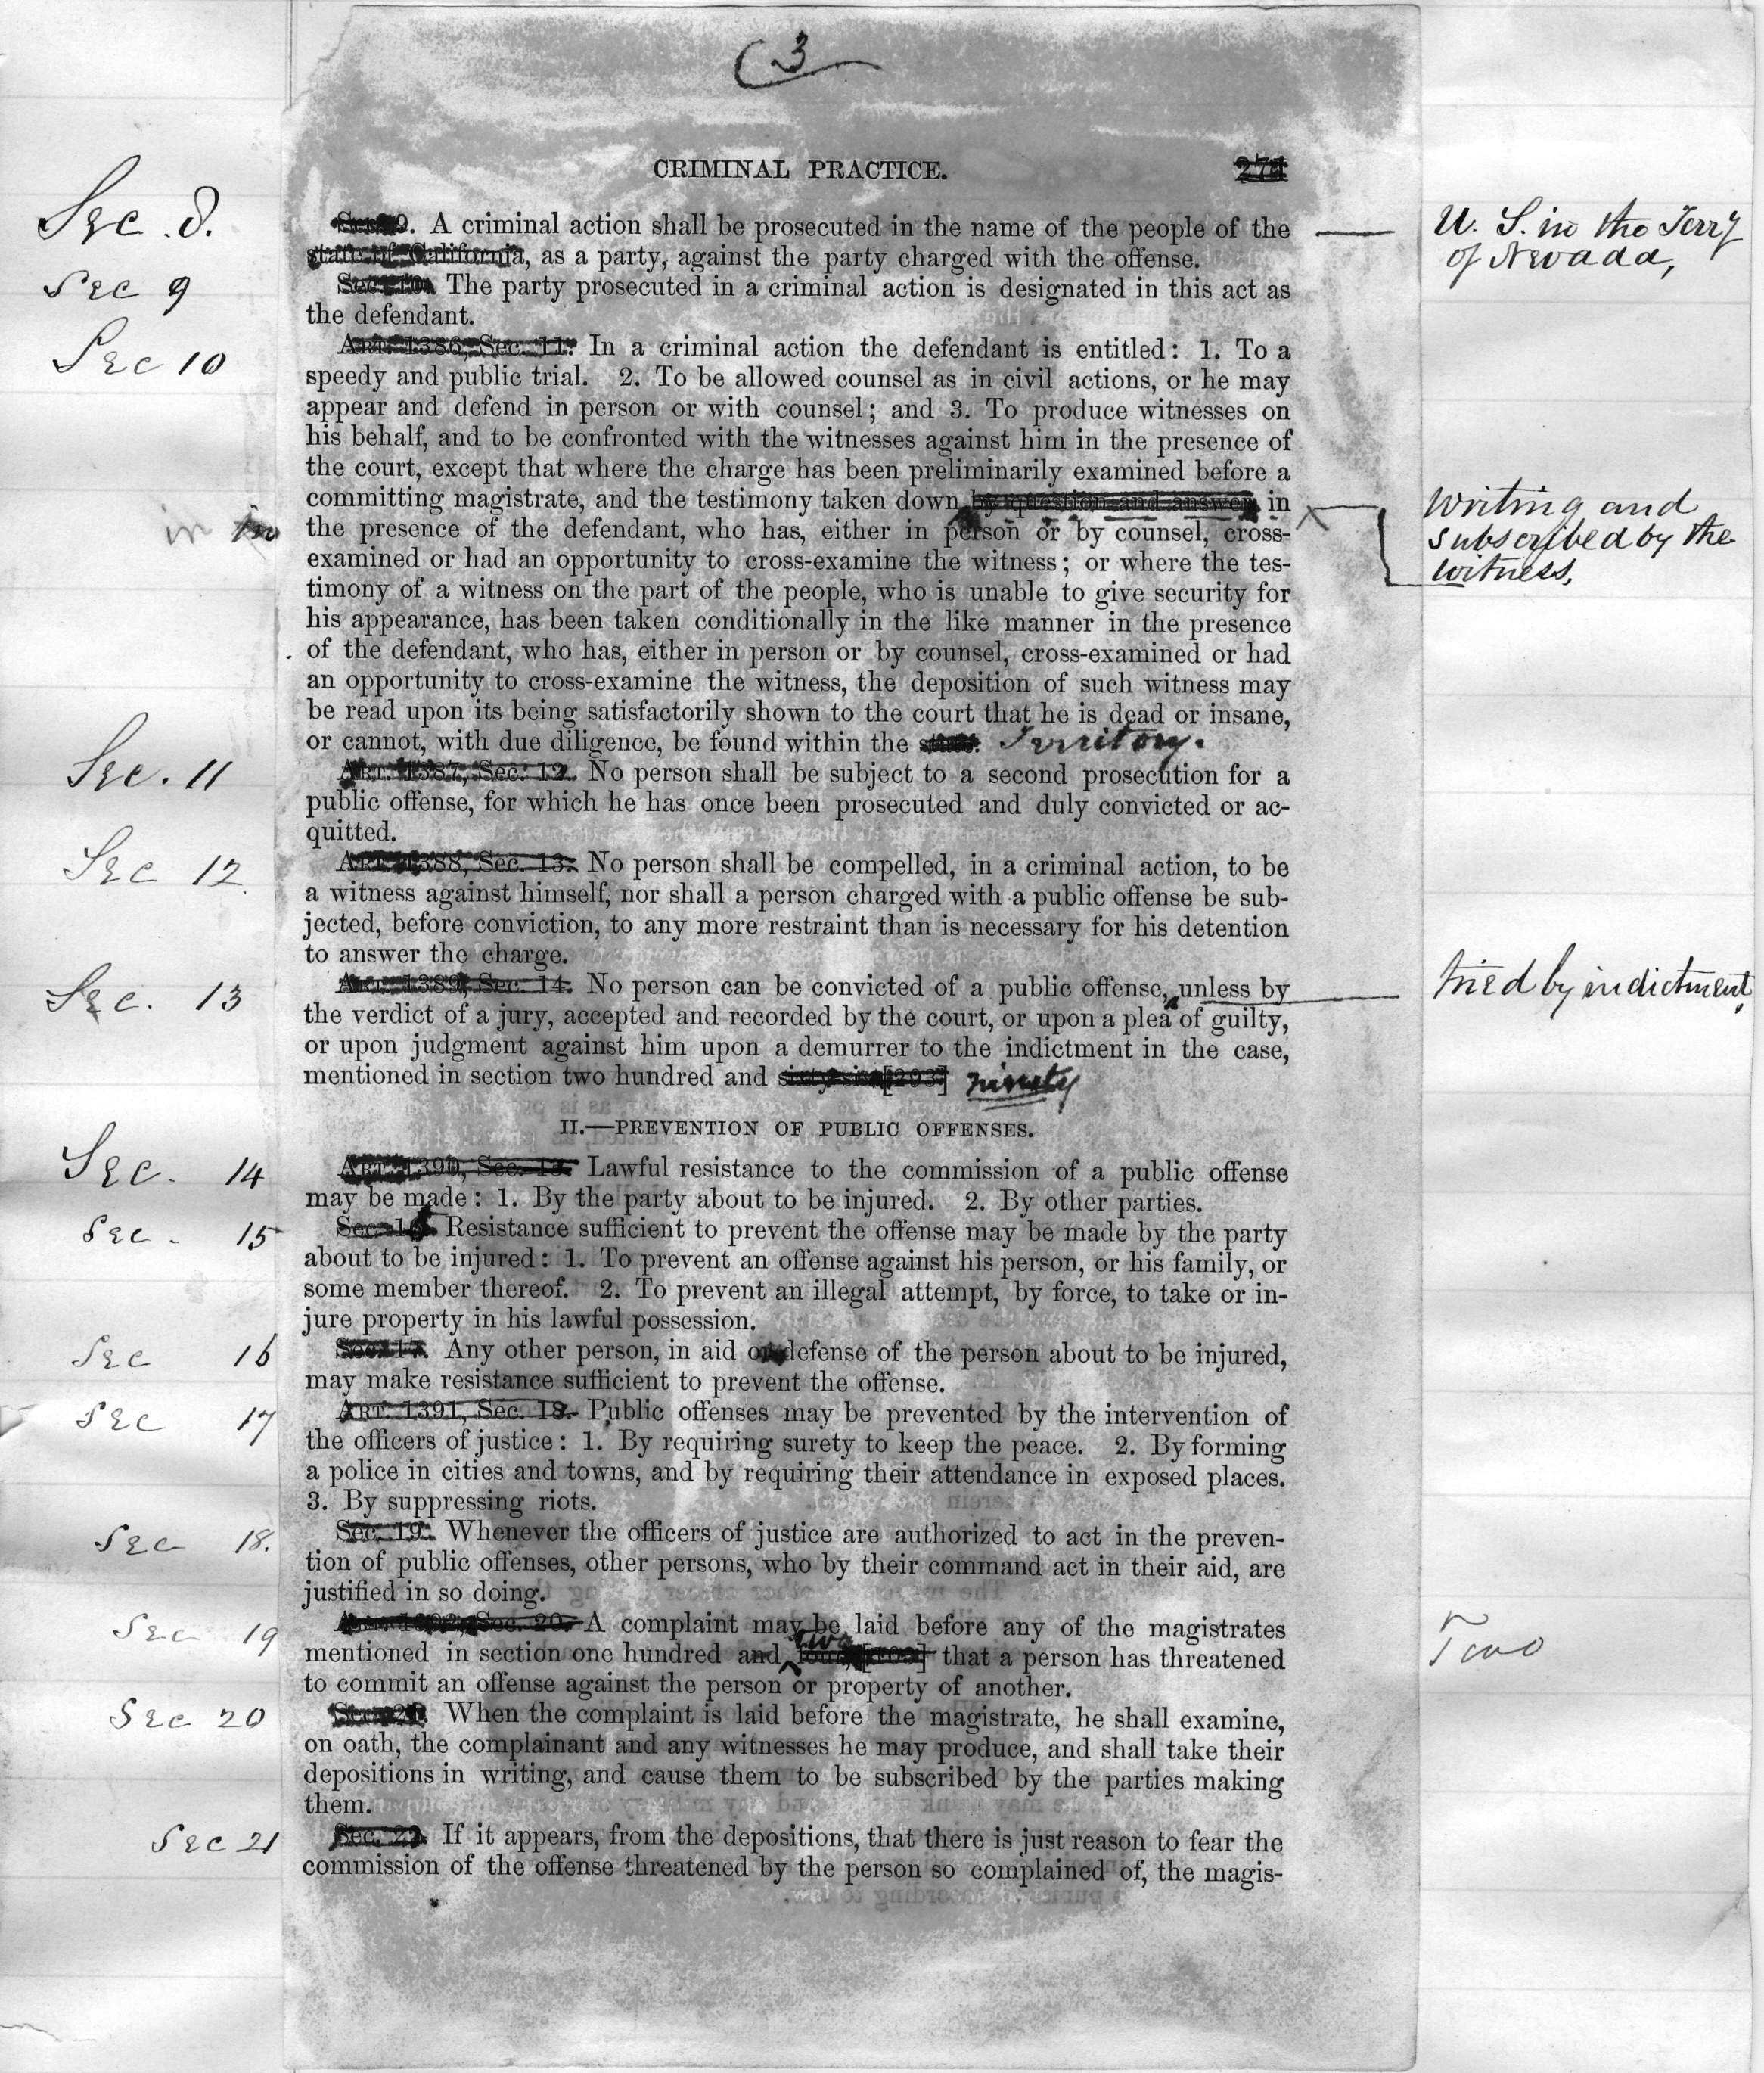 (3
CRIMINAL PRACTICE. 274
Sec. 8. Sec. 9. A criminal action shall be prosecuted in the name of the people of the U. S. in the Terry
state of California, as a party, against the party charged with the offense. of Nevada,
Sec 9 Sec. 10. The party prosecuted in a criminal action is designated in this act as
the defendant.
Sec 10 Art. 1386, Sec. 11. In a criminal action the defendant is entitled: 1. To a
speedy and public trial. 2. To be allowed counsel as in civil actions, or he may
appear and defend in person or with counsel; and 3. To produce witnesses on
his behalf, and to be confronted with the witnesses against him in the presence of
the court, except that where the charge has been preliminarily examined before a
committing magistrate, and the testimony taken down by question and answer in writing and
in the presence of the defendant, who has, either in person or by counsel, cross- subscribed by the
examined or had an opportunity to cross-examine the witness; or where the tes- witness,
timony of a witness on the part of the people, who is unable to give security for
his appearance, has been taken conditionally in the like manner in the presence
of the defendant, who has, either in person or by counsel, cross-examined or had
an opportunity to cross-examine the witness, the deposition of such witness may
be read upon its being satisfactorily shown to the court that he is dead or insane,
or cannot, with due diligence, be found within the state. Territory.
Sec. 11 Art. 1387, Sec. 12. No person shall be subject to a second prosecution for a
public offense, for which he has once been prosecuted and duly convicted or ac-
quitted.
Sec 12 Art. 1388, Sec. 13. No person shall be compelled, in a criminal action, to be
a witness against himself, nor shall a person charged with a public offense be sub-
jected, before conviction, to any more restraint than is necessary for his detention
to answer the charge.
Sec. 13 Art. 1389, Sec. 14. No person can be convicted of a public offense, unless by tried by indictment,
the verdict of a jury, accepted and recorded by the court, or upon a plea of guilty,
or upon judgment against him upon a demurrer to the indictment in the case,
mentioned in section two hundred and sixty-six [293] ninety
II.—PREVENTION OF PUBLIC OFFENSES.
Sec. 14 Art. 1390, Sec. 15. Lawful resistance to the commission of a public offense
may be made: 1. By the party about to be injured. 2. By other parties.
Sec. 15 Sec. 16. Resistance sufficient to prevent the offense may be made by the party
about to be injured: 1. To prevent an offense against his person, or his family, or
some member thereof. 2. To prevent an illegal attempt, by force, to take or in-
jure property in his lawful possession.
Sec 16 Sec. 17. Any other person, in aid or defense of the person about to be injured,
may make resistance sufficient to prevent the offense.
Sec 17 Art. 1391, Sec. 18. Public offenses may be prevented by the intervention of
the officers of justice: 1. By requiring surety to keep the peace. 2. By forming
a police in cities and towns, and by requiring their attendance in exposed places.
3. By suppressing riots.
Sec 18. Sec. 19. Whenever the officers of justice are authorized to act in the preven-
tion of public offenses, other persons, who by their command act in their aid, are
justified in so doing.
Sec 19 Art. 1392, Sec. 20. A complaint may be laid before any of the magistrates Two
mentioned in section one hundred and two four, [103] that a person has threatened
to commit an offense against the person or property of another.
Sec 20 Sec. 21. When the complaint is laid before the magistrate, he shall examine,
on oath, the complainant and any witnesses he may produce, and shall take their
depositions in writing, and cause them to be subscribed by the parties making
them.
Sec 21 Sec. 22. If it appears, from the depositions, that there is just reason to fear the
commission of the offense threatened by the person so complained of, the magis-